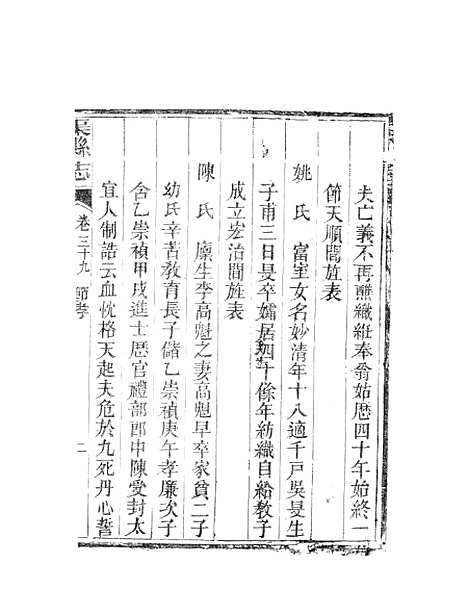 夫亡義不再醮織絍奉翁姑歷四十年始終一
節天順間旌表
姚氏　富室女名妙清年十八適千戶吳旻生
子甫三日旻卒孀居四十餘年紡織自給教子
成立宏治間旌表
陳氏　廩生李高魁之妻高魁早卒家貧二子
幼氏辛苦敎育長子儲乙崇禎庚午孝廉次子
含乙崇禎甲戌進士歷官禮部郎中陳受封太
宜人制誥云血忱格天起夫危於九死丹心誓
縣志
卷三十九　節孝
二